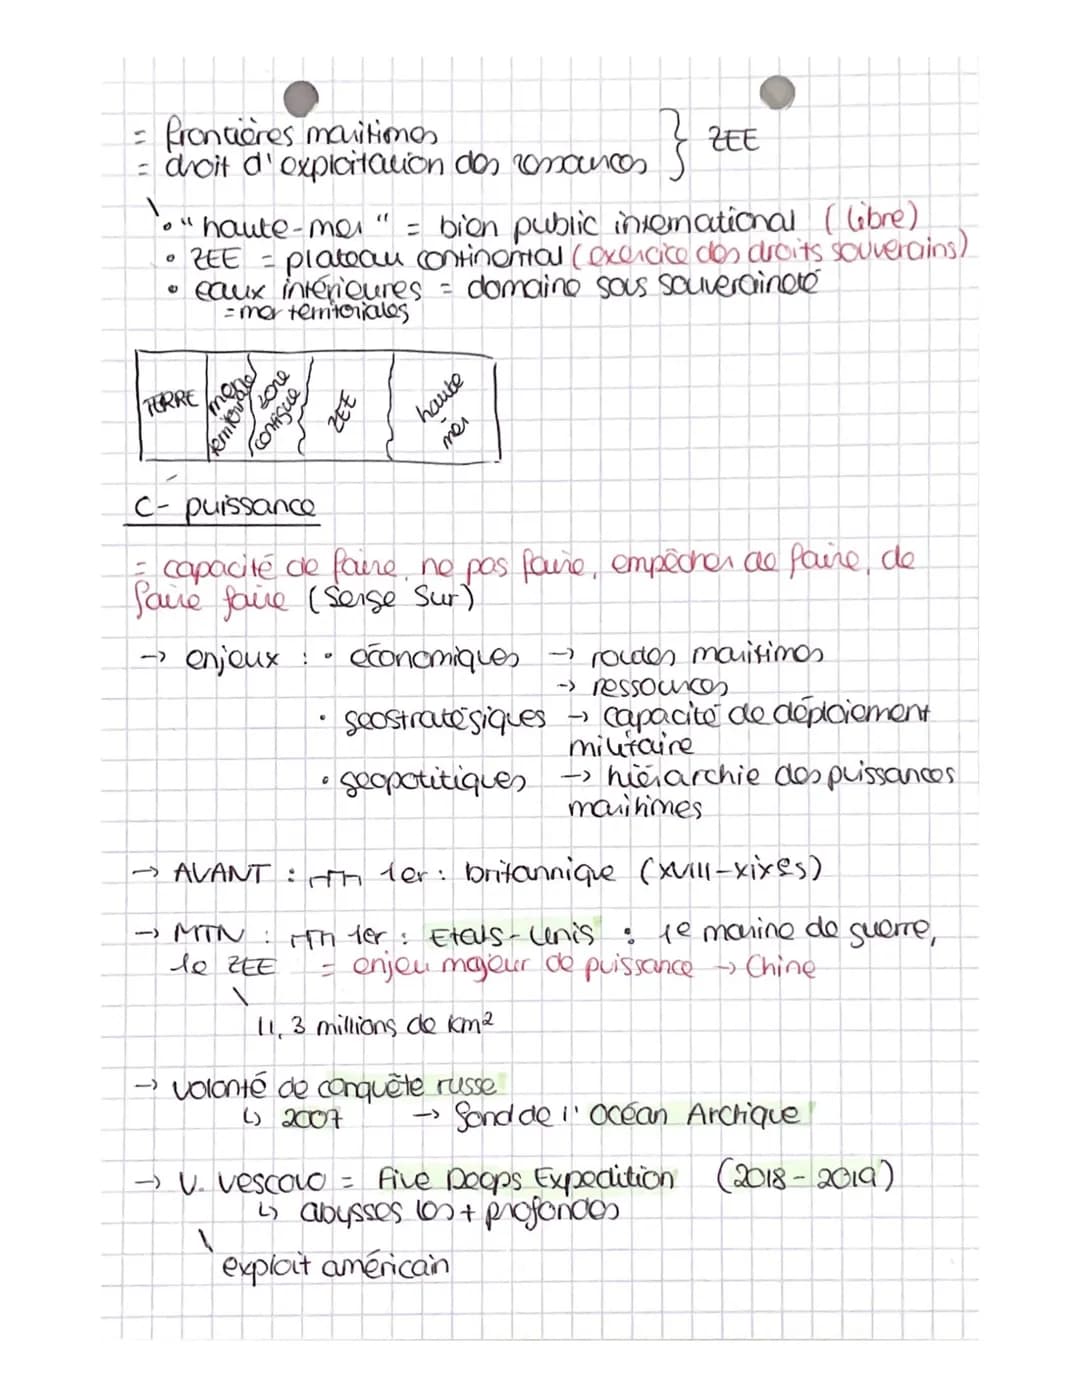 = frontières maritimes
= droit d'exploitation des ressources } ZEE
• "haute-mer" = bien public international (libre)
• ZEE = plateau continental (exercice des droits souverains)
• eaux intérieures = domaine sous souveraineté
= mer territoriales
TERRE
mer territoriale
zone contigue
ZEE
haute mer
C- puissance
= capacité de faire, ne pas faire, empêcher de faire, de
faire faire (Serge Sur)
→ enjeux : • économiques → routes maritimes
→ ressources
• géostratégiques → capacité de déploiement
militaire
• géopolitiques → hiérarchie des puissances
maritimes
→ AVANT : 1er : britannique (XVIII-XIXes)
→ MTN : 1er : Etats-Unis : 1e marine de guerre,
1e ZEE = enjeu majeur de puissance → Chine
11,3 millions de km²
→ volonté de conquête russe
↳ 2007 → fond de l'Océan Arctique
→ V. Vescovo = Five Deeps Expedition (2018-2019)
↳ abysses les + profondes
exploit américain